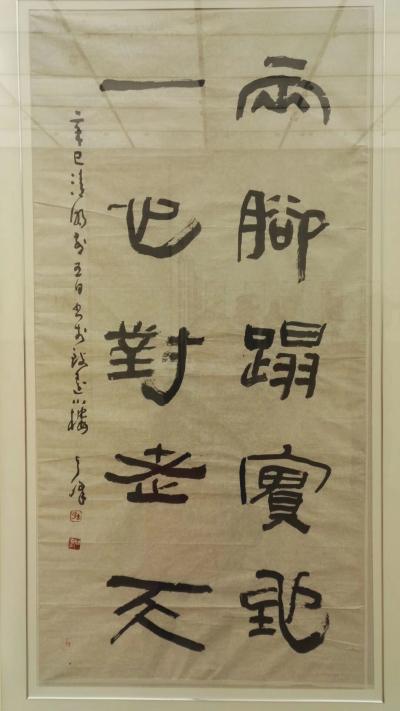 兩腳蹋實地
一心對老天
辛巳清明前五日書於遠小樓